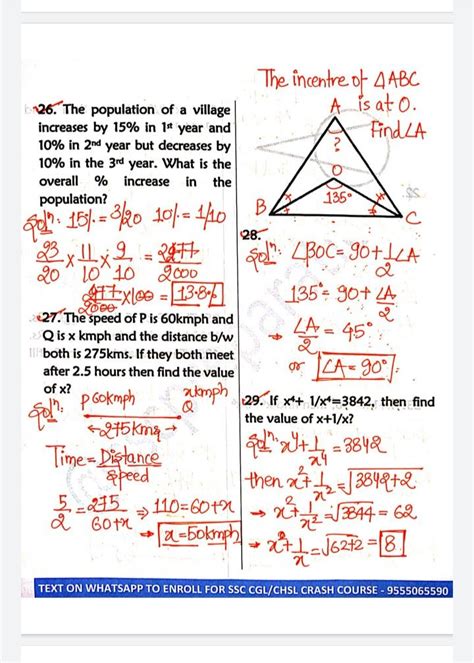 26. The population of a village
increases by 15% in 1st year and
10% in 2nd year but decreases by
10% in the 3rd year. What is the
overall % increase in the
population?
Soln: 15% = 3/20 10% = 1/10
23/20 × 11/10 × 9/10 = 2277/2000
277/2000 × 100 = 13.8%
27. The speed of P is 60kmph and
Q is x kmph and the distance b/w
both is 275kms. If they both meet
after 2.5 hours then find the value
of x?
Soln: P 60kmph xkmph Q
←275km→
Time = Distance/Speed
5/2 = 275/60+x ⇒ 110=60+x
→ x=50kmph
The incentre of △ABC
is at O.
Find∠A
A
?
O
135°
B
C
28.
Soln: ∠BOC = 90+1/2∠A
135° = 90+∠A/2
→ ∠A/2 = 45°
or ∠A=90°
29. If x⁴+ 1/x⁴=3842, then find
the value of x+1/x?
Soln: x⁴+1/x⁴ = 3842
then x²+1/x² = √3842+2
→ x²+1/x² = √3844 = 62
→ x²+1/x = √62+2 = 8
TEXT ON WHATSAPP TO ENROLL FOR SSC CGL/CHSL CRASH COURSE - 9555065590